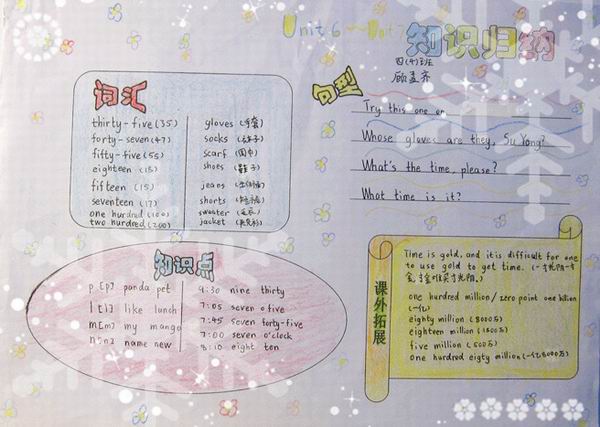 Unit 6 ~ Unit 7 知识归纳
四(4)班
顾孟齐
词汇
thirty-five (35)
forty-seven (47)
fifty-five (55)
eighteen (18)
fifteen (15)
seventeen (17)
one hundred (100)
two hundred (200)
gloves (手套)
socks
scarf (围巾)
shoes (鞋子)
jeans
shorts
sweater
jacket
句型
Try this one on
Whose gloves are they, Su Yang?
What's the time, please?
What time is it?
知识点
p [p] panda pet
l [l] like lunch
m [m] my mango
n [n] name new
9:30 nine thirty
7:05 seven o five
7:45 seven forty-five
7:00 seven o'clock
8:10 eight ten
课外拓展
Time is gold, and it is difficult for one
to use gold to get time. (一寸光阴一寸
金,寸金难买寸光阴。)
one hundred million / zero point one billion
(一亿)
eighty million (8000万)
eighteen million (1800万)
five million (500万)
one hundred eigty million (一亿8000万)